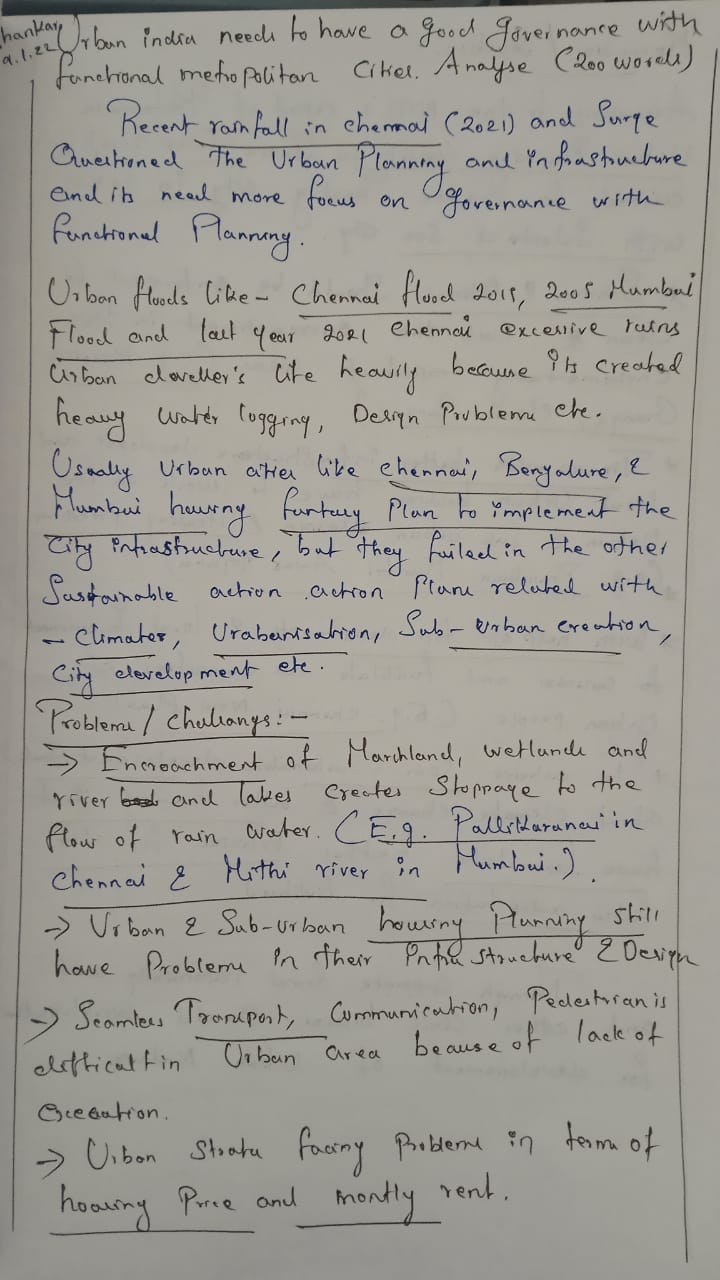 hankar
9.1.22
Urban india needs to have a good governance with
functional metropolitan Cities. Analyse (200 words)
Recent rainfall in chennai (2021) and Surge
Questioned The Urban Planning and infrastructure
and its need more focus on governance with
functional Planning.
Urban floods like - Chennai flood 2015, 2005 Mumbai
Flood and last year 2021 Chennai excessive rains
Urban dweller's life heavily because its created
heavy water logging, Design Problems etc.
Usually Urban cities like chennai, Bengalure, &
Mumbai having fantasy Plan to implement the
City infrastructure, but they failed in the other
Sustainable action action Plans related with
- Climates, Urabanisation, Sub-urban creation,
City development etc.
Problems / Challangs: -
→ Encroachment of Marchland, wetlands and
river and lakes creates Stoppage to the
flow of rain water. (E.g. Pallikaranai in
Chennai & Mithi river in Mumbai.).
→ Urban & Sub-urban housing Planning still
have Problems in their Infra structure & Design
→ Seamless Transport, Communication, Pedestrian is
difficalt in Urban area because of lack of
→ Urban Strata facing Problems in terms of
housing Price and montly rent.